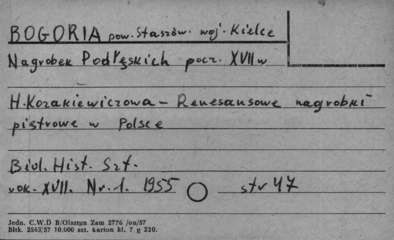 BOGORIA pow. Staszów. woj. Kielce
Nagrobek Podłęskich pocz. XVII w
H. Kozakiewiczowa – Renesansowe nagrobki
piętrowe w Polsce
Biul. Hist. Szt.
rok. XVII. Nr. 1. 1955 str 47
Jedn. C.W.D B/Olsztyn Zam 2776 /on/57
Bltk. 2563/57 10.000 szt. karton kl. 7 g 220.